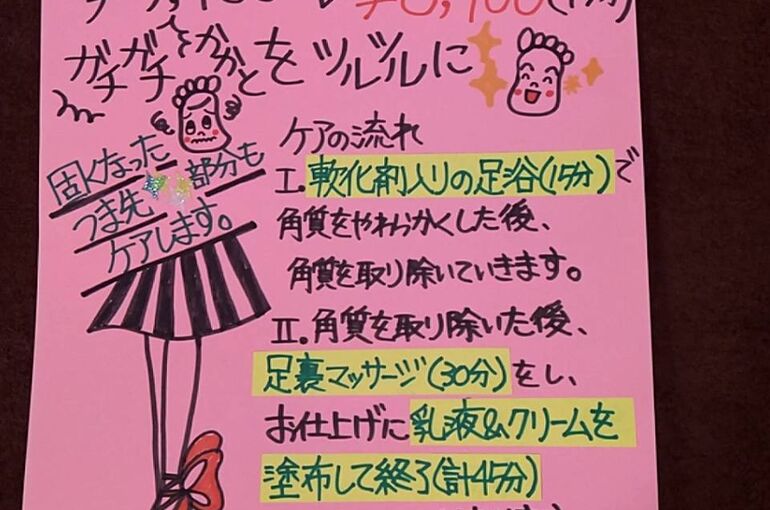 ガチガチかかとをツルツルに
固くなった
部分も
つま先
ケアします。
ケアの流れ
I.軟化剤入りの足浴(15分)で
角質をやわらかくした後、
角質を取り除いていきます。
II.角質を取り除いた後、
足裏マッサージ(30分)をし、
お仕上げに乳液&クリームを
塗布して終了(計45分)